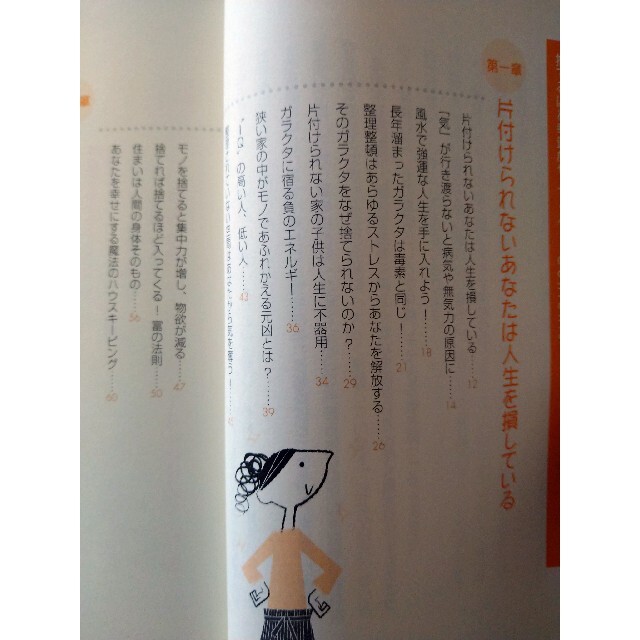 第一章
片付けられないあなたは人生を損している
片付けられないあなたは人生を損している……12
「気」が行き渡らないと病気や無気力の原因に……14
風水で強運な人生を手に入れよう！……18
長年溜まったガラクタは毒素と同じ！……21
整理整頓はあらゆるストレスからあなたを解放する……26
そのガラクタをなぜ捨てられないのか？……29
片付けられない家の子供は人生に不器用……34
ガラクタに宿る負のエネルギー……36
狭い家の中がモノであふれかえる元凶とは？……39
の高い人、低い人……43
モノを捨てると集中力が増し、物欲が減る……47
捨てれば捨てるほど入ってくる！富の法則……50
住まいは人間の身体そのもの……56
あなたを幸せにする魔法のハウスキーピング……60